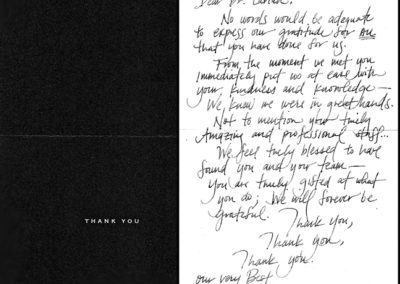 THANK YOU
Dear Dr.
No words would be adequate
to express our gratitude for ALL
that you have done for us.
From the moment we met you
immediately put us at ease with
your kindness and knowledge—
We know we were in great hands.
Not to mention your truly
Amazing and professional staff...
We feel truly blessed to have
found you and your team—
You are truly gifted at what
you do; We will forever be
grateful. Thank you,
Thank you,
Thank you.
our very Best